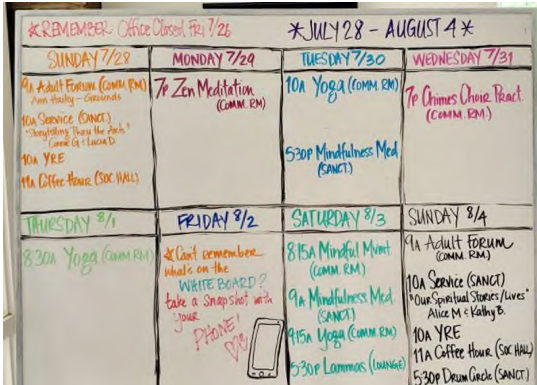 *REMEMBER Office Closed Fri 7/26
*JULY 28 - AUGUST 4*
SUNDAY 7/28
9A Adult Forum (COMM. RM)
Ann Hurley - Grounds
10A Service (SANCT.)
"Storytelling Thru the Arts"
Connie G & Lucia D.
10A YRE
11A Coffee Hour (SOC. HALL)
MONDAY 7/29
7P Zen Meditation
(COMM. RM)
TUESDAY 7/30
10A Yoga (COMM. RM)
530P Mindfulness Med.
(SANCT.)
WEDNESDAY 7/31
7P Chimes Choir Pract.
(COMM. RM.)
THURSDAY 8/1
830A Yoga (COMM RM)
FRIDAY 8/2
*Can't remember
what's on the
WHITE BOARD?
take a snapshot with
your
PHONE!
SATURDAY 8/3
815A Mindful Mvmt.
(COMM. RM.)
9A Mindfulness Med.
(SANCT.)
915A Yoga (COMM. RM)
530P Lammas (LOUNGE)
SUNDAY 8/4
9A Adult FORUM
(COMM. RM)
10A Service (SANCT)
"Our Spiritual Stories/Lives"
Alice M & Kathy B.
10A YRE
11A Coffee Hour (SOC HALL)
530P Drum Circle (SANCT.)